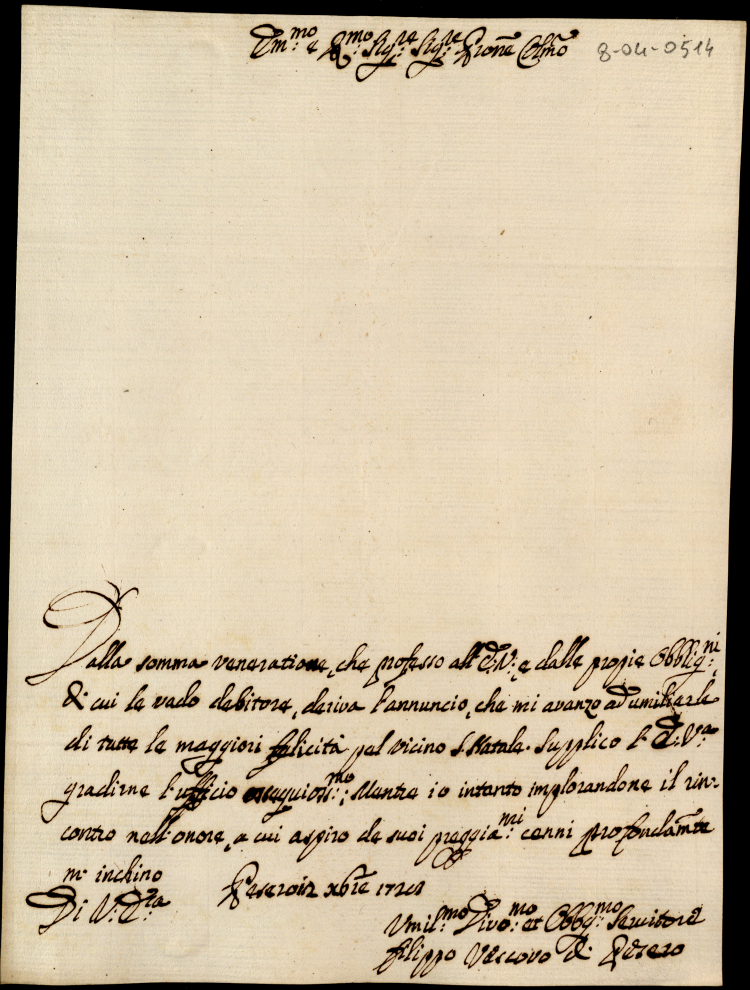 Em.mo e R.mo Sig.re Sig.re Prone Colmo
8-04-0514
Dalla somma veneratione, che professo all'E.V: e dalle propie Obblig.ni
di cui le vado debitore, deriva l'annuncio, che mi avanzo ad umiliarle
di tutte le maggiori felicità pel vicino S. Natale. Supplico l'E.V.a
gradirne l'ufficio ossequios.mo; Mentre io intanto implorandone il rin:
contro nell'onore, a cui aspiro de suoi preggia.mi cenni profondam.te
m'inchino
Pesaro 12 xbre
Di V: E.za
Umil.mo Divo.mo et Obblig.mo Servitore
Filippo Vescovo di Pesaro